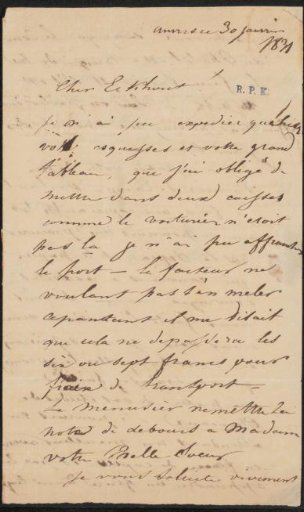 30 janvier
Cher Eekhout
R.P.K
je n'ai pu expedier que
vos esquisses et votre grand
tableau, que j'ai obligé de
mettre dans deux caisses
comme le voiturier n'etoit
pas là je n'ai pu affranchir
le port — le facteur ne
voulant pas s'en meler
cependant il me disait
que cela ne depassera les
six ou sept francs pour
frais de transport —
Le menuisier remettra la
note de debours a Madame
votre Belle Soeur
je vous solicite vivement